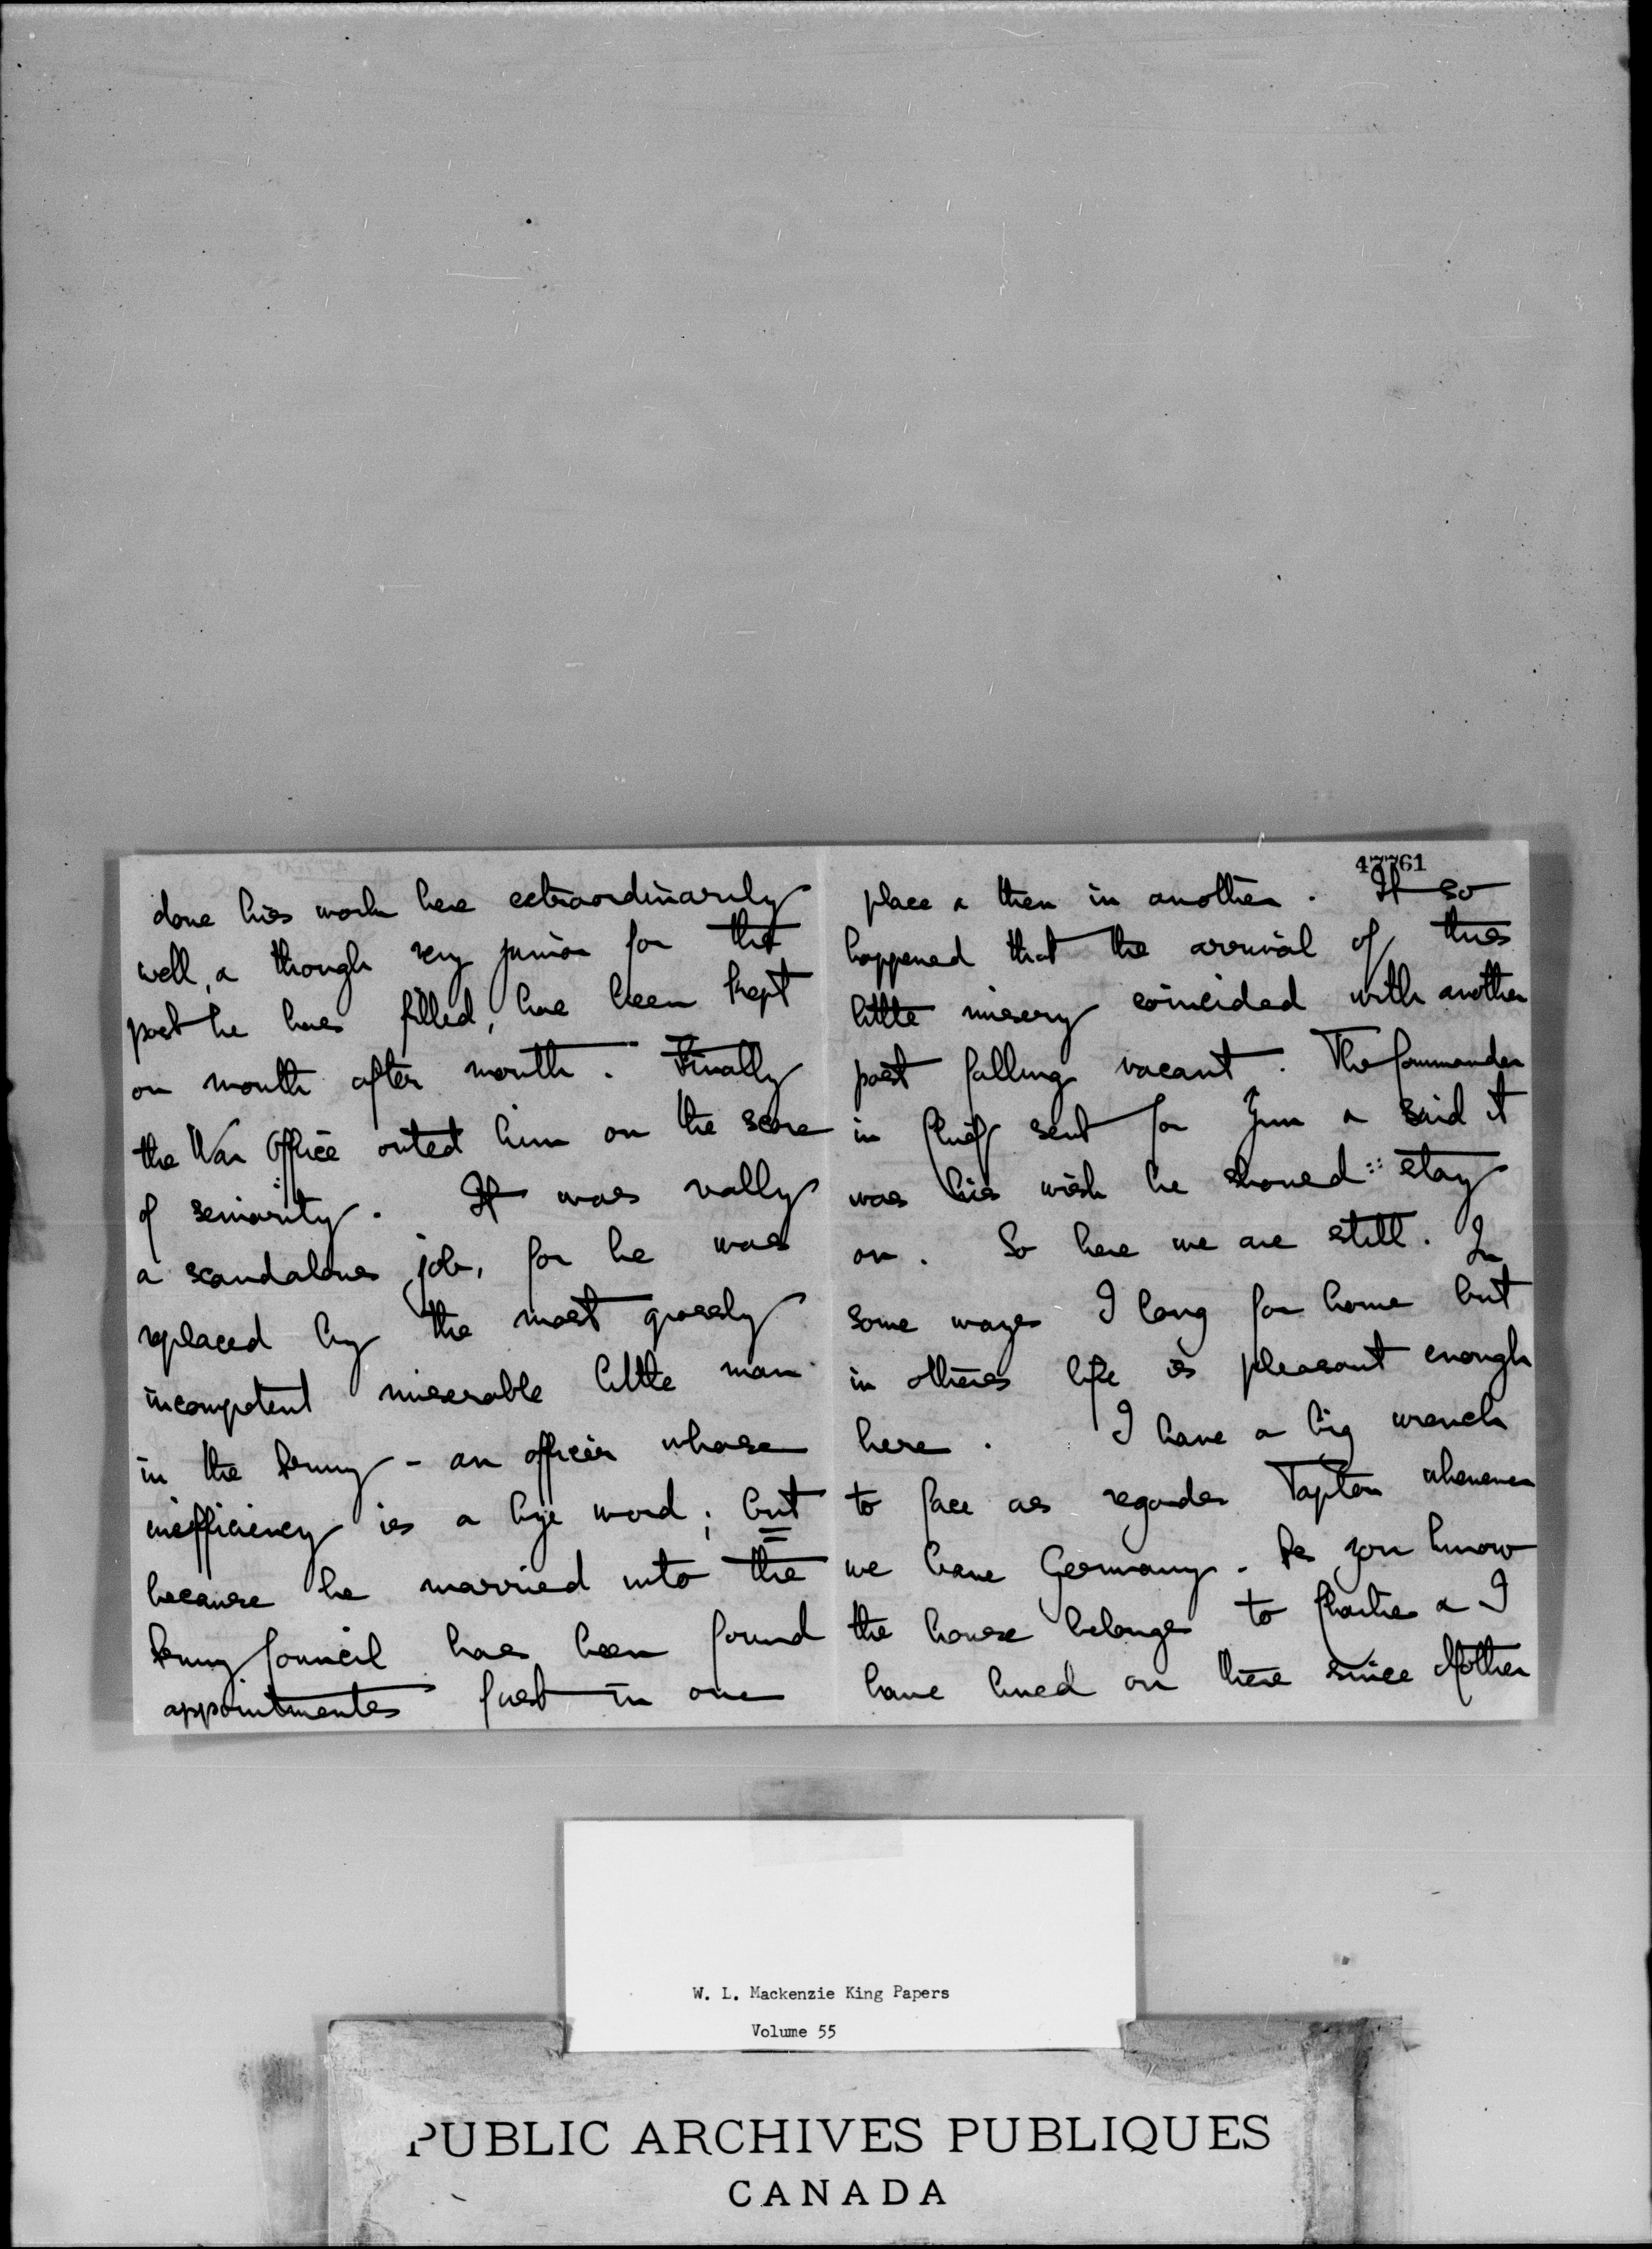 done his work here extraordinarily
well, & though very junior for the
post he has filled, has been kept
on month after month. Finally
the War Office outed him on the score
of seniority. It was really
a scandalous job, for he was
replaced by the most grossly
incompetent miserable little man
in the Army - an officer whose
inefficiency is a bye word; but
because he married into the
Army Council has been found
appointments first in one
47761
place & then in another. It so
happened that the arrival of this
little misery coincided with another
post falling vacant. The Commander
in Chief sent for Jim & said it
was his wish he should stay
on. So here we are still. In
some ways I long for home but
in others life is pleasant enough
here. I have a big wrench
to face as regards Tapton whenever
we leave Germany. As you know
the house belongs to Charlie & I
have lived on there since Mother
W. L. Mackenzie King Papers
Volume 55
PUBLIC ARCHIVES PUBLIQUES
CANADA